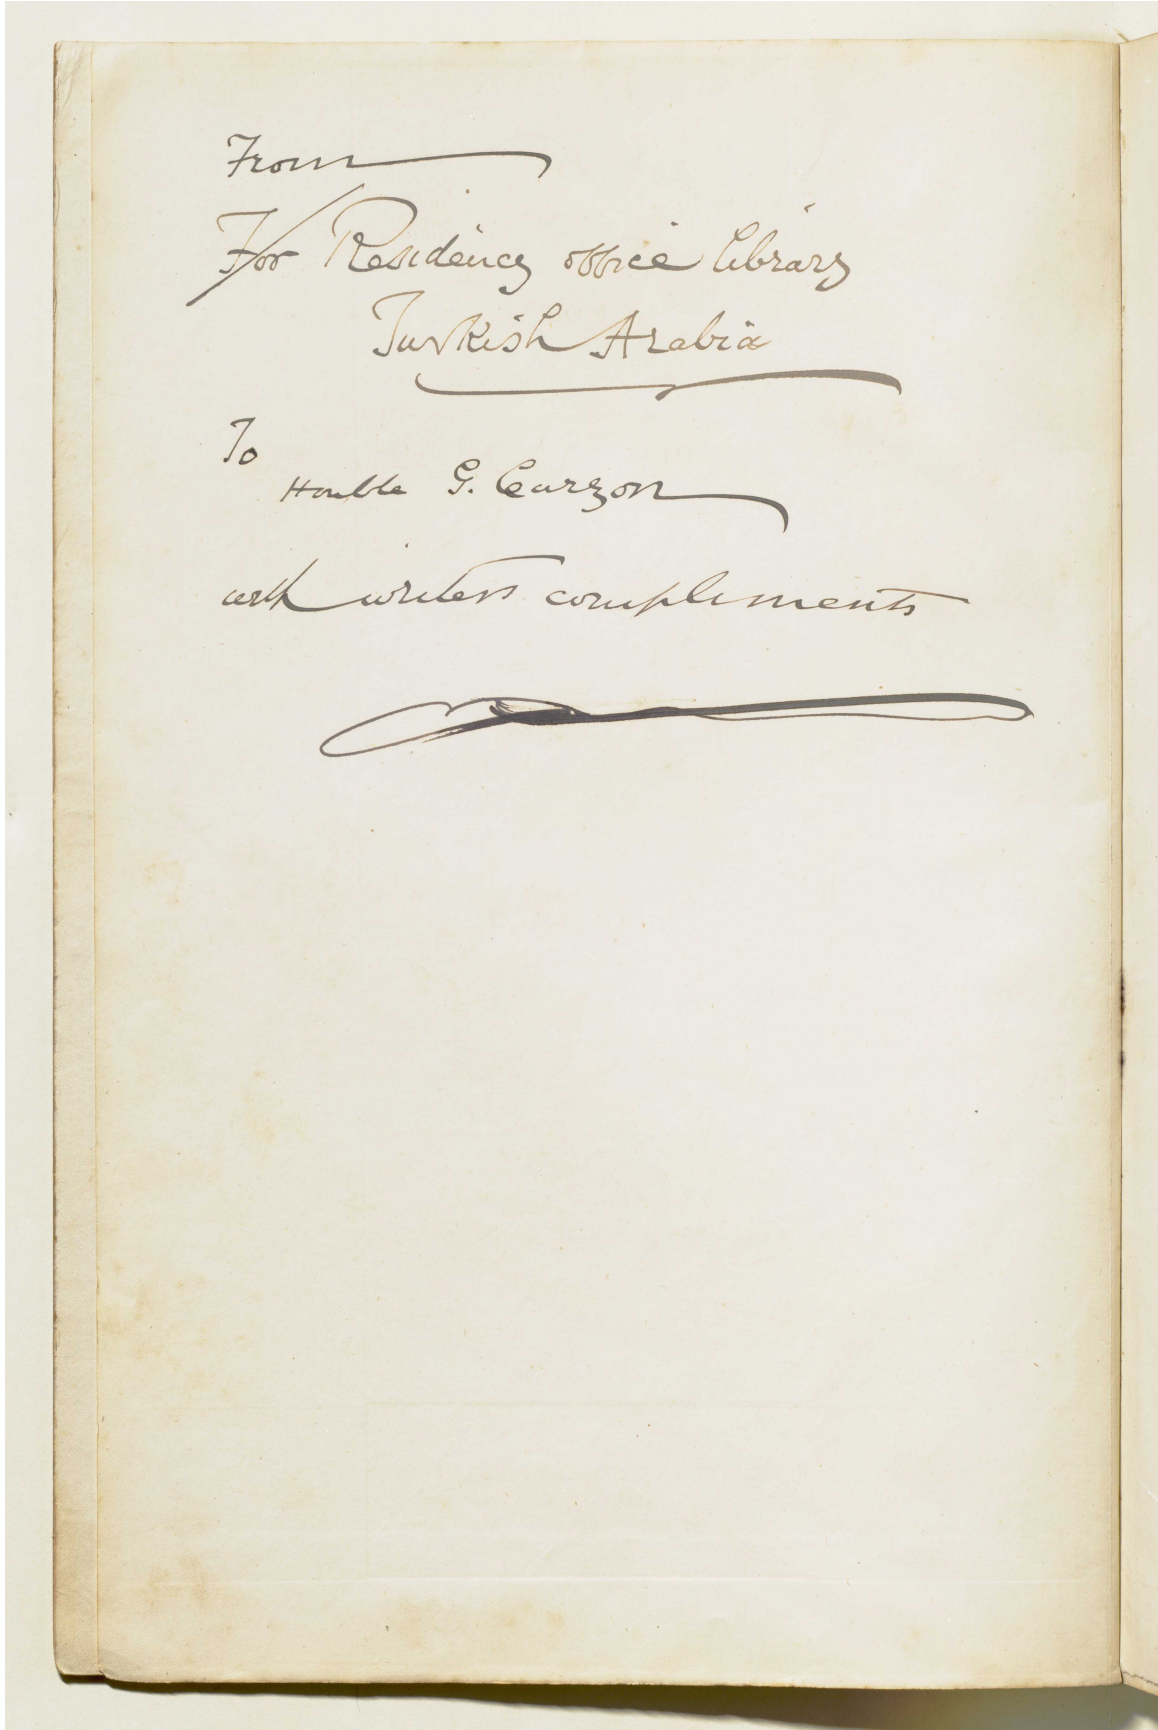 From
For Residency office library
Turkish Arabia
To
Honble G. Curzon
with writers compliments